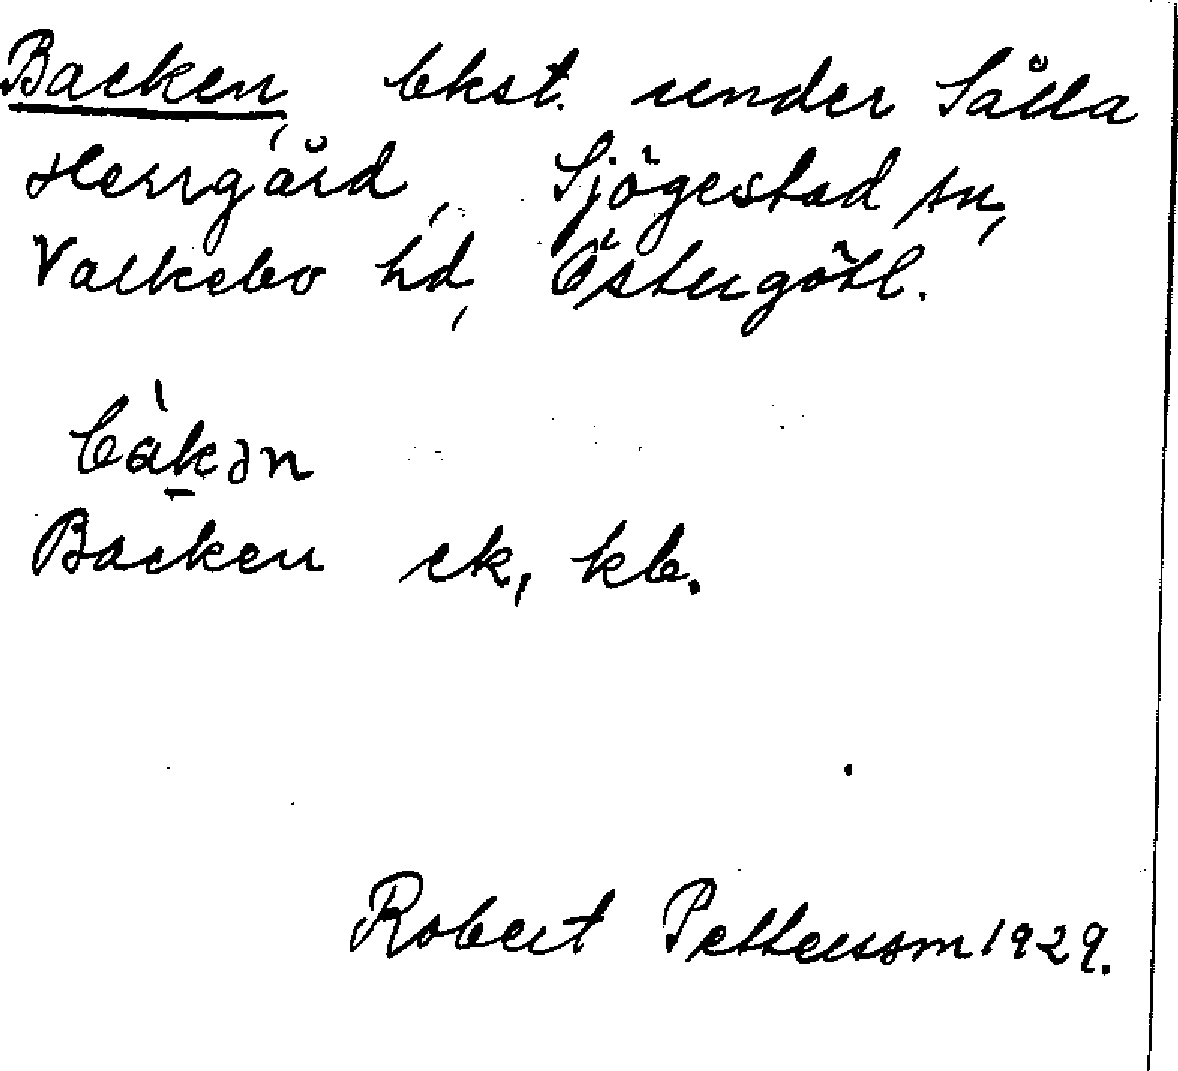 Backen, bkst. under Sålla
Herrgård, Sjögestad sn,
Valkebo hd, Östergötl.
bàk̠ən
Backen ek, kb.
Robert Pettersson 1929.